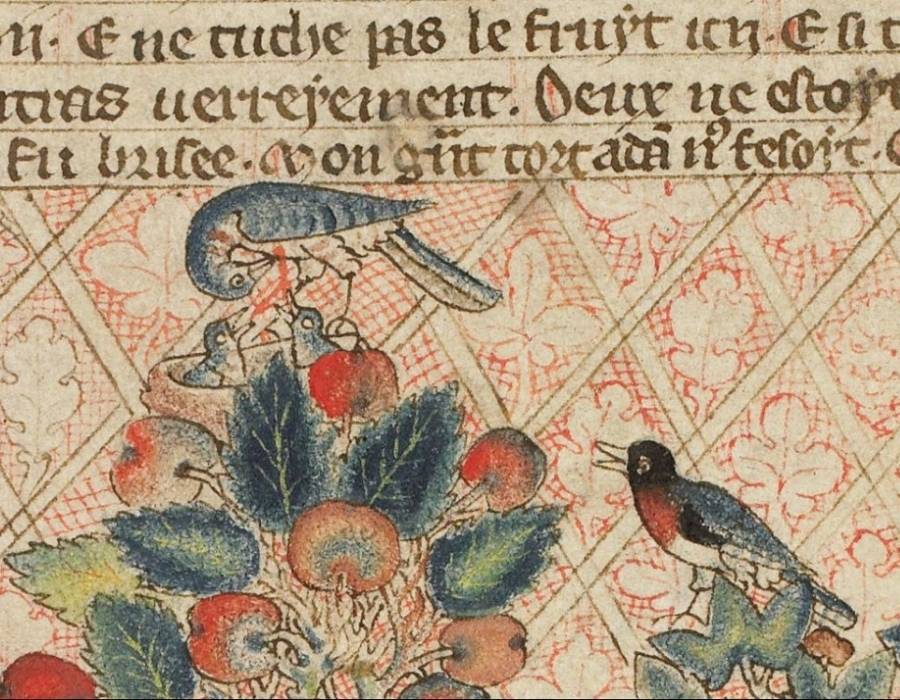 n. E ne tuche pas le fruyt icy. E si t
ntras uerreyement. Deux ne estoyt
fu brisee. Mon gn̄t tort adā nꝰ fesoit.